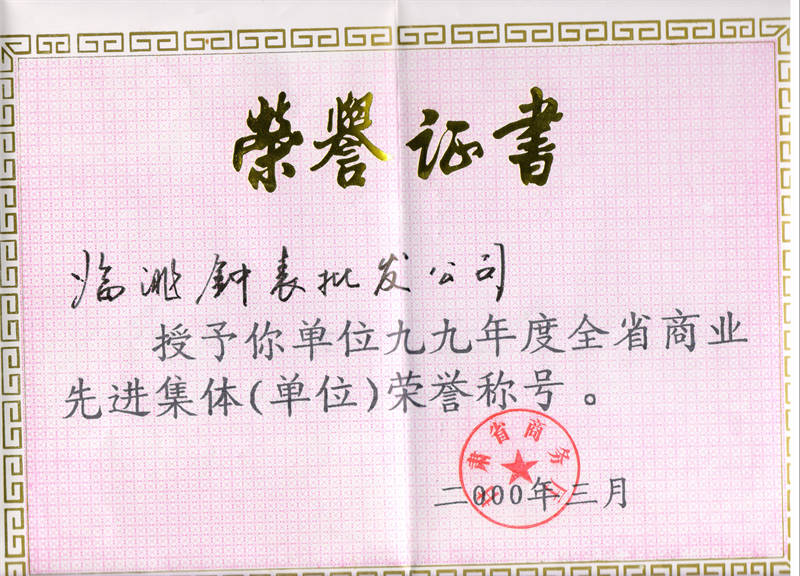 榮譽证書
临洮钟表批发公司
授予你单位九九年度全省商业
先进集体(单位)荣誉称号。
肃省商务厅
二000年三月